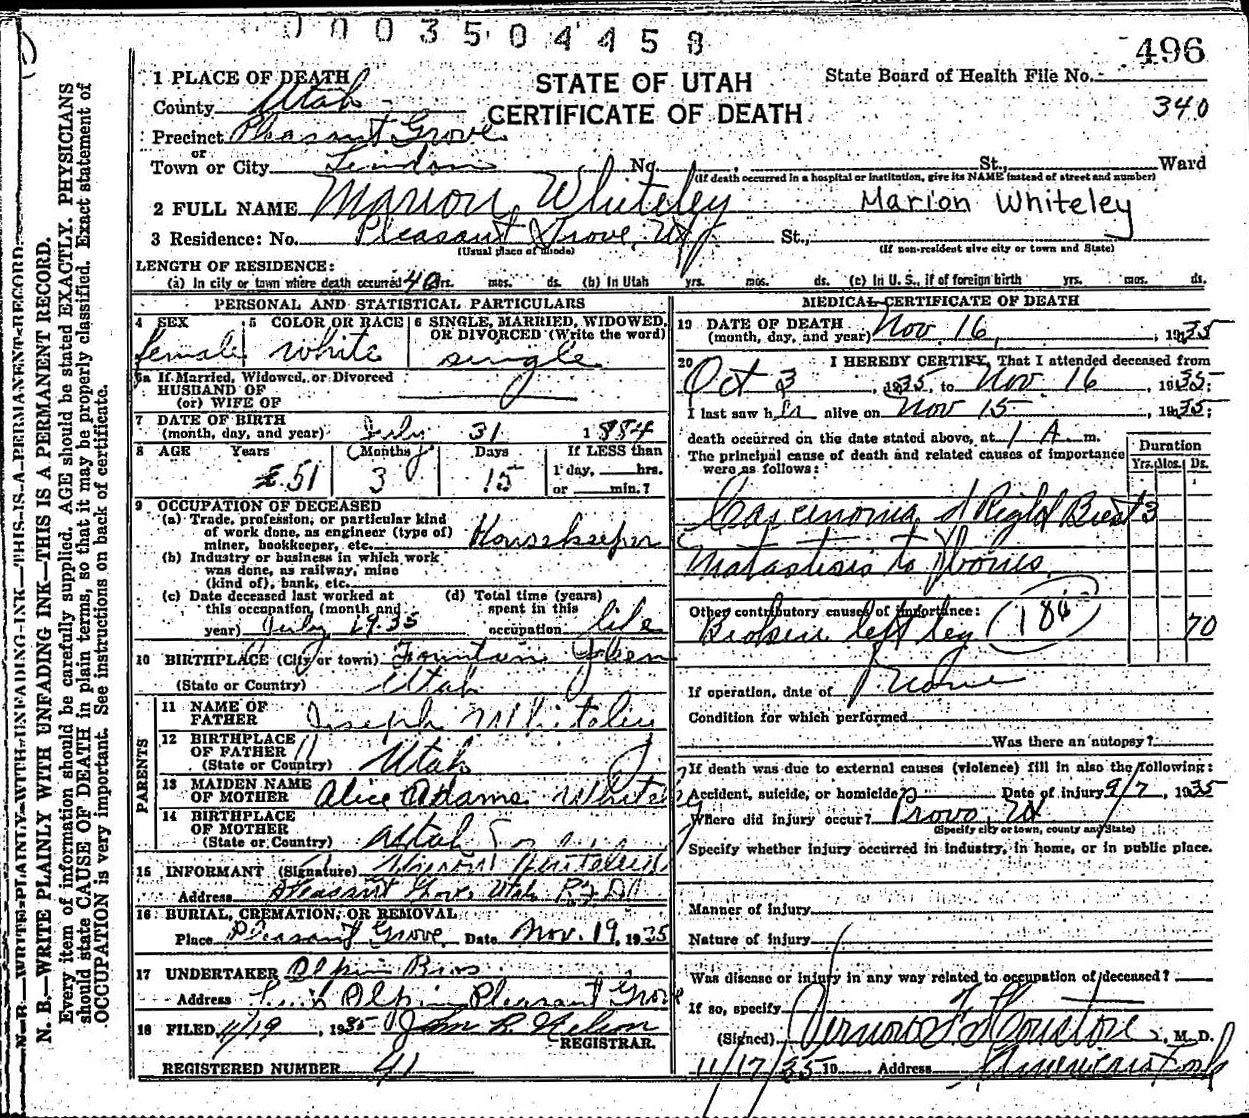 0003504458
496
1 PLACE OF DEATH
STATE OF UTAH
State Board of Health File No.
County Utah
CERTIFICATE OF DEATH
340
Precinct Pleasant Grove
or
Town or City Lindon No. St., Ward
(If death occurred in a hospital or institution, give its NAME instead of street and number)
2 FULL NAME Marion Whiteley Marion Whiteley
3 Residence: No. Pleasant Grove, Ut St.,
(Usual place of abode) (If non-resident give city or town and State)
LENGTH OF RESIDENCE:
(a) In city or town where death occurred 40 yrs. mos. ds. (b) In Utah yrs. mos. ds. (c) In U. S., if of foreign birth yrs. mos. ds.
PERSONAL AND STATISTICAL PARTICULARS
4 SEX 5 COLOR OR RACE 6 SINGLE, MARRIED, WIDOWED, OR DIVORCED (Write the word)
female white single
6a If Married, Widowed, or Divorced
HUSBAND OF
(or) WIFE OF
7 DATE OF BIRTH
(month, day, and year) July 31 1884
8 AGE Years Months Days If LESS than
51 3 15 1 day, hrs.
or min.?
9 OCCUPATION OF DECEASED
(a) Trade, profession, or particular kind
of work done, as engineer (type of)
miner, bookkeeper, etc. Housekeeper
(b) Industry or business in which work
was done, as railway, mine
(kind of), bank, etc.
(c) Date deceased last worked at (d) Total time (years)
this occupation, (month and spent in this
year) July 1935 occupation life
10 BIRTHPLACE (City or town) Fountain Green
(State or Country) Utah
PARENTS
11 NAME OF
FATHER Joseph Whiteley
12 BIRTHPLACE
OF FATHER
(State or Country) Utah
13 MAIDEN NAME
OF MOTHER Alice Adams Whiteley
14 BIRTHPLACE
OF MOTHER
(State or Country) Utah
15 INFORMANT (Signature) Whiteley
Address Pleasant Grove Utah R.F.D.1
16 BURIAL, CREMATION, OR REMOVAL
Place Pleasant Grove Date Nov. 19, 1935
17 UNDERTAKER Olpin Bros
Address Olpin Pleasant Grove
18 FILED 11/19, 1935 John R. Nelson
REGISTRAR.
REGISTERED NUMBER 41
MEDICAL CERTIFICATE OF DEATH
19 DATE OF DEATH
(month, day, and year) Nov. 16, 1935
20 I HEREBY CERTIFY, That I attended deceased from
Oct 3, 1935, to Nov 16, 1935;
I last saw her alive on Nov 15, 1935;
death occurred on the date stated above, at 1 A. m.
The principal cause of death and related causes of importance
were as follows:
Duration
Yrs. Mos. Ds.
Carcinoma of Right Breast 3
Matastisis to bones
Other contributory causes of importance:
Broken left leg (186) 70
If operation, date of None
Condition for which performed
Was there an autopsy?
If death was due to external causes (violence) fill in also the following:
Accident, suicide, or homicide? Date of injury 9/7, 1935
Where did injury occur? Provo, Ut
(Specify city or town, county and State)
Specify whether injury occurred in industry, in home, or in public place.
Manner of injury
Nature of injury
Was disease or injury in any way related to occupation of deceased?
If so, specify
(Signed) Vernon F. Houston, M. D.
11/17/35 19 Address American Fork
N. B.—WRITE PLAINLY WITH UNFADING INK—THIS IS A PERMANENT RECORD.
N. B.—WRITE PLAINLY WITH UNFADING INK—THIS IS A PERMANENT RECORD.
Every item of information should be carefully supplied. AGE should be stated EXACTLY. PHYSICIANS
should state CAUSE OF DEATH in plain terms, so that it may be properly classified. Exact statement of
OCCUPATION is very important. See instructions on back of certificate.